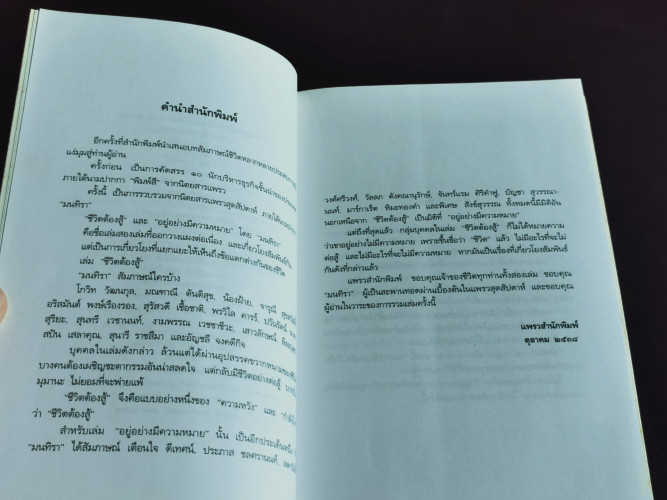 คำนำสำนักพิมพ์
อีกครั้งที่สำนักพิมพ์นำเสนอบทสัมภาษณ์ชีวิตหลากหลาย
แง่มุมสู่ท่านผู้อ่าน
ครั้งก่อน เป็นการคัดสรร ๑๐ นักบริหารธุรกิจชั้นนำ
ภายใต้นามปากกา "พิมพ์สี" จากนิตยสารแพรว
ครั้งนี้ เป็นการรวบรวมจากนิตยสารแพรวสุดสัปดาห์ ภายใต้นาม
"มนทิรา"
"ชีวิตต้องสู้" และ "อยู่อย่างมีความหมาย" โดย "มนทิรา"
คือชื่อเล่มสองเล่มที่ออกวางแผงต่อเนื่อง และเกี่ยวโยงสัมพันธ์
แต่เป็นการเกี่ยวโยงที่แยกแยะให้เห็นถึงข้อแตกต่างกันของชีวิต
เล่ม "ชีวิตต้องสู้"
"มนทิรา" สัมภาษณ์ใครบ้าง
โกวิท วัฒนกุล, มณฑาณี ตันติสุข, น้องฝ้าย, จารุณี
อริสมันต์ พงษ์เรืองรอง, สุรัสวดี เชื้อชาติ, พรวิไล คาร์ร์,
สุริยะ, สุนทรี เวชานนท์, งามพรรณ เวชชาชีวะ, เสาวลักษณ์
สปัน เสลาคุณ, สุนารี ราชสีมา และอัญชลี จงคดีกิจ
บุคคลในเล่มดังกล่าว ล้วนแต่ได้ผ่านอุปสรรคขวากหนาม
บางคนต้องเผชิญชะตากรรมอันน่าสลดใจ แต่กลับมีชีวิตอย่างต่อสู้
มุมานะ ไม่ยอมที่จะพ่ายแพ้
"ชีวิตต้องสู้" จึงคือแบบอย่างหนึ่งของ "ความหวัง" และ
ว่า "ชีวิตต้องสู้"
สำหรับเล่ม "อยู่อย่างมีความหมาย" นั้น เป็นอีกประเด็นหนึ่ง
"มนทิรา" ได้สัมภาษณ์ เตือนใจ ดีเทศน์, ประภาส ชลศรานนท์,
วงศ์ศรีวงศ์, วัลลภ ตังคณานุรักษ์, จันทร์แรม ศิริคำฟู, บัญชา สุวรรณา-
นนท์, มาร์กาเร็ต หิมะทองคำ และพิเศษ สังข์สุวรรณ ทั้งหมดนี้มีมิติอัน
นอกเหนือจาก "ชีวิตต้องสู้" เป็นมิติที่ "อยู่อย่างมีความหมาย"
แต่ถึงที่สุดแล้ว กลุ่มบุคคลในเล่ม "ชีวิตต้องสู้" ก็ไม่ได้หมายความ
ว่าเขาอยู่อย่างไม่มีความหมาย เพราะขึ้นชื่อว่า "ชีวิต" แล้ว ไม่มีอะไรที่จะไม่
ต่อสู้ และไม่มีอะไรที่จะไม่มีความหมาย หากมันเป็นเรื่องที่เกี่ยวโยงสัมพันธ์
กันดังที่กล่าวแล้ว
แพรวสำนักพิมพ์ ขอบคุณเจ้าของชีวิตทุกท่านทั้งสองเล่ม ขอบคุณ
"มนทิรา" ผู้เป็นสะพานทอดผ่านเบื้องต้นในแพรวสุดสัปดาห์ และขอบคุณ
ผู้อ่านในวาระของการรวมเล่มครั้งนี้
แพรวสำนักพิมพ์
ตุลาคม ๒๕๓๘